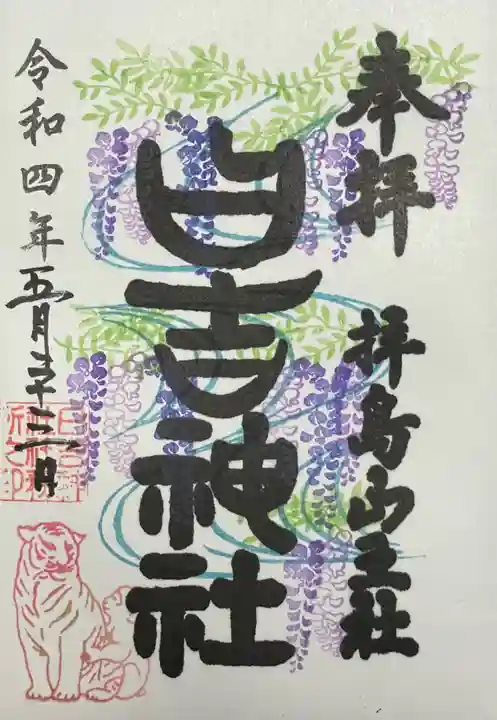 奉拝
拝島山王社
日吉神社
令和四年五月二十二日